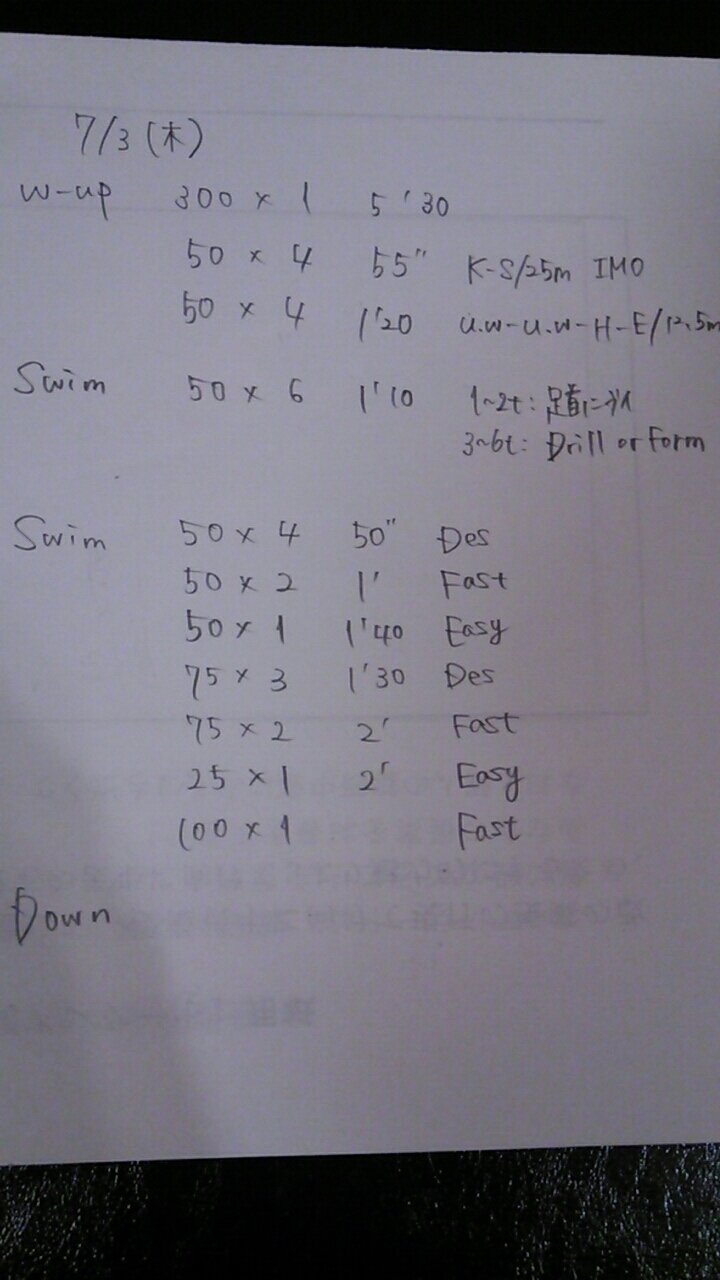 7/3 (木)
W-up 300 × 1 5'30
50 × 4 55" K-S/25m IMO
50 × 4 1'20 u.w-u.w-H-E/12.5m
Swim 50 × 6 1'10 1~2t: 足首に
3~6t: Drill or Form
Swim 50 × 4 50" Des
50 × 2 1' Fast
50 × 1 1'40 Easy
75 × 3 1'30 Des
75 × 2 2' Fast
25 × 1 2' Easy
100 × 1 Fast
Down